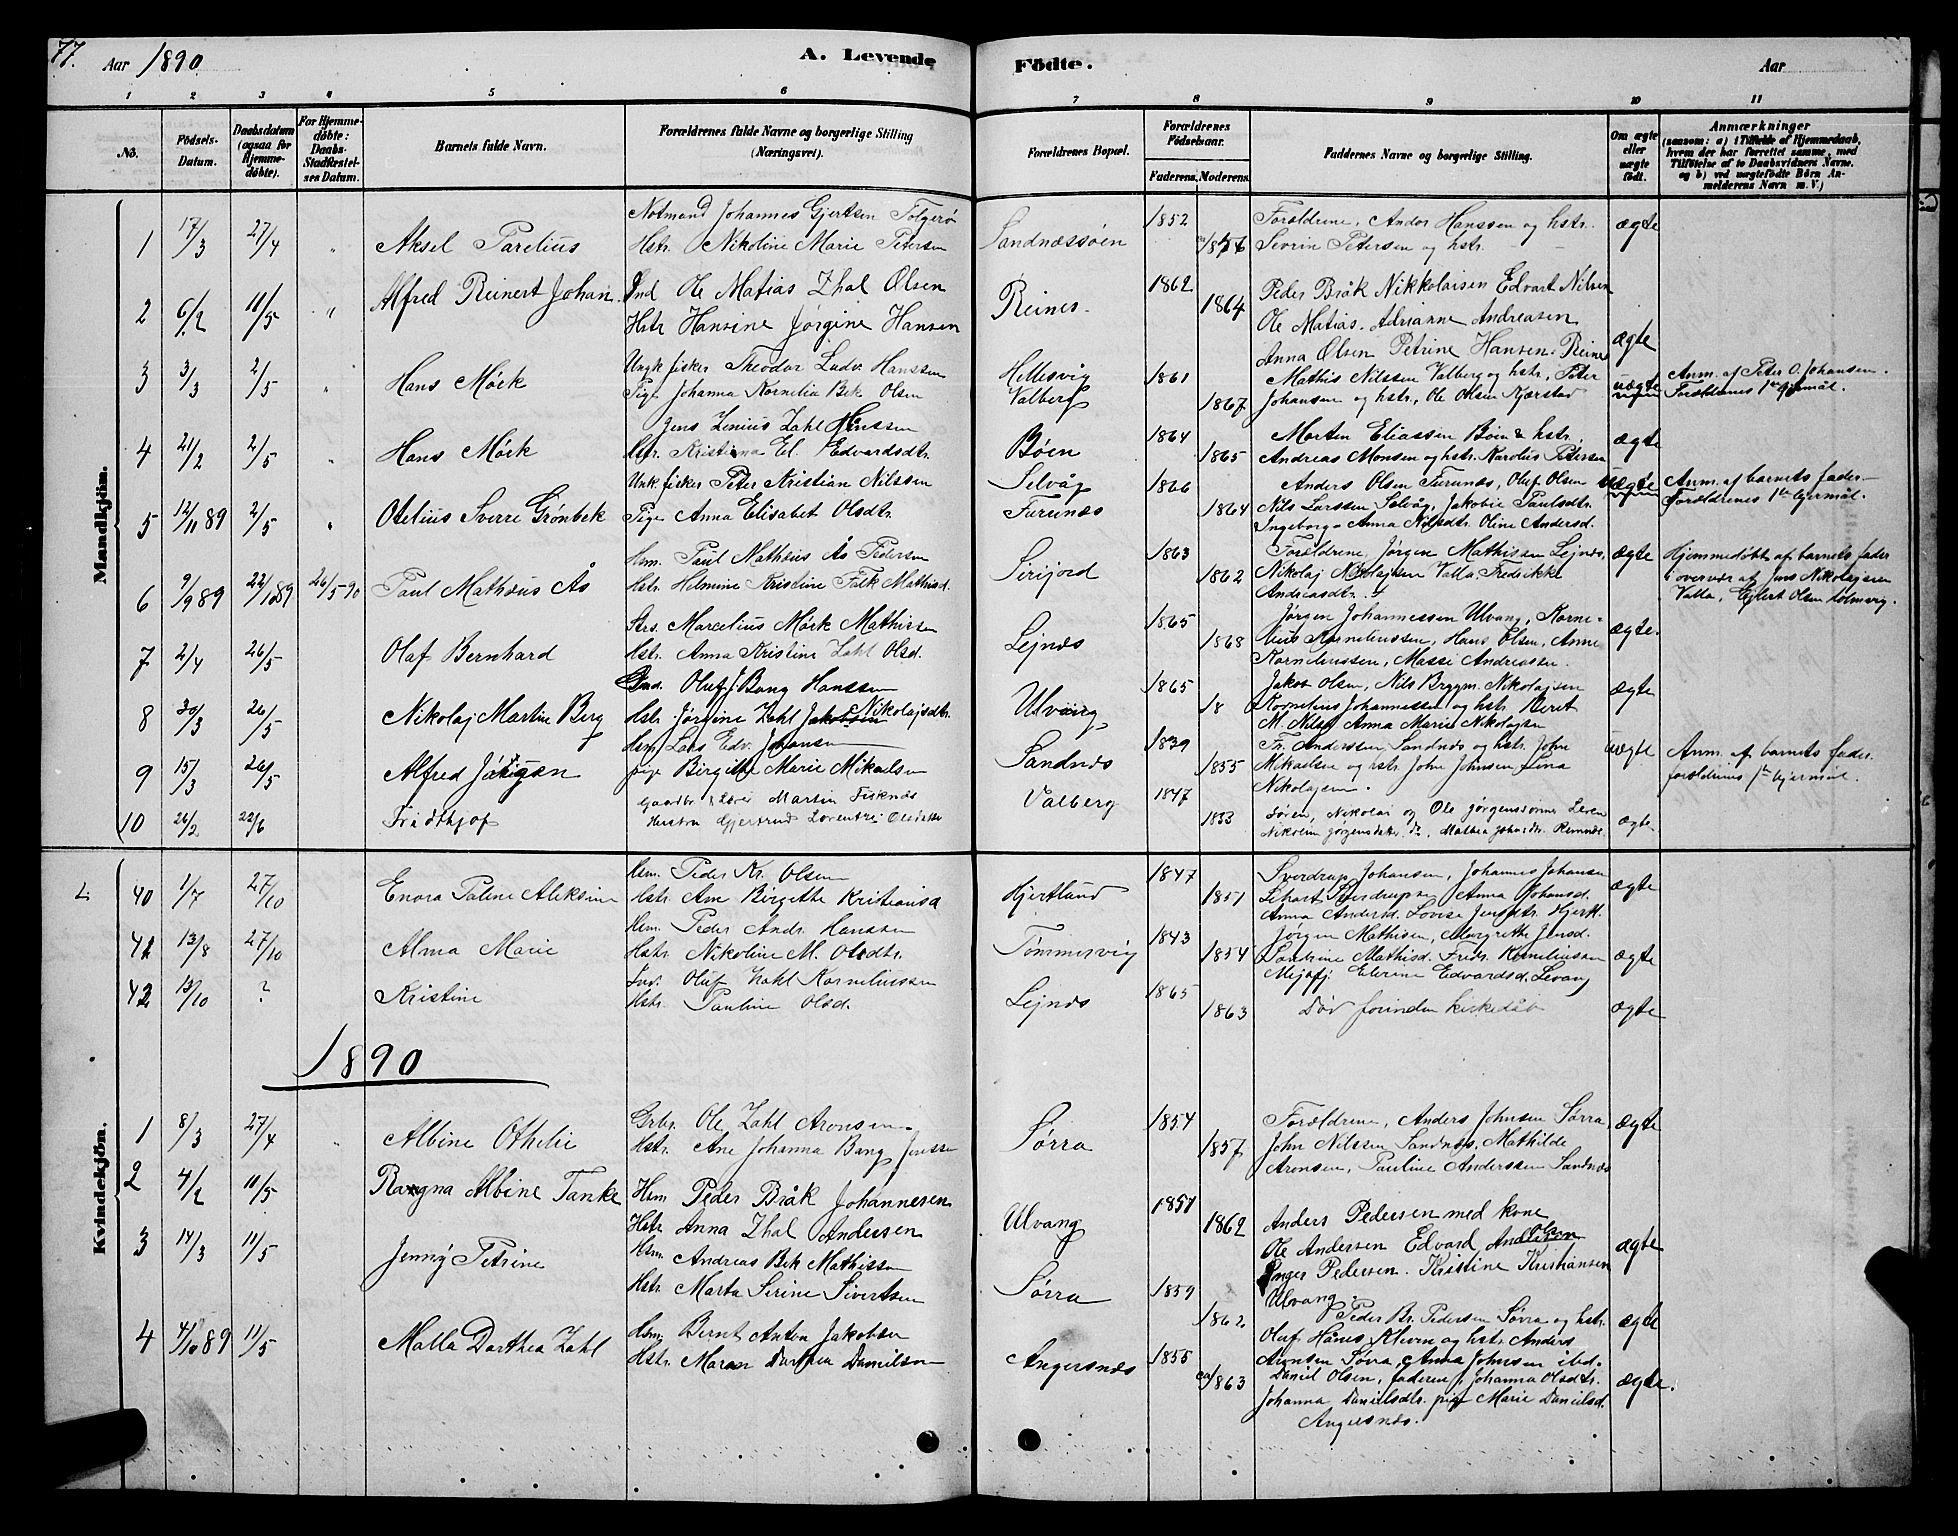 77. Aar 1890
A. Levende Födte.
Aar
1 2 3 4 5 6 7 8 9 10 11
No.
Födsels-Datum.
Daabsdatum (ogsaa for Hjemmedöbte).
For Hjemmedöbte: Daabs-Stadfæstelses Datum.
Barnets fulde Navn.
Forældrenes fulde Navne og borgerlige Stilling (Næringsvei).
Forældrenes Bopæl.
Forældrenes Födselsaar.
Faderens. Moderens.
Faddernes Navne og borgerlige Stilling.
Om ægte eller uægte födt.
Anmærkninger
(saasom: a) i Tilfælde af Hjemmedaab, hvem der har forrettet samme, med Tilföielse af to Daabsvidners Navne, og b) ved uægtefödte Börn Anmelderens Navn m. V.)
Mandkjön.
1 17/3 27/4 " Aksel Parelius
Notmand Johannes Gjertsen Tolgerö
Hstr. Nikoline Marie Petersen
Sandnæssöen 1852
Forældrene, Andor Hanssen og hstr.
Severin Petersen og hstr.
ægte
2 6/2 11/5 " Alfred Reinert Johan
Ind Ole Matias Zhal Olsen
Hstr Hansine Jørgine Hansen
Reines. 1862 1864
Peder Bråk Nikkolaisen Edvart Nilsen
Ole Matias. Adrianne Andreasen
Anna Olsen Petrine Hansen. Reines
ægte
3 3/3 2/5 " Hans Mörk
Ungk fisker Theodor Ludv. Hanssen
Pige Johanna Kornelia Bek Olsen
Hellesvig
Valberg
1861 1867
Mathis Nilssen Valberg og hstr, Peter
Johansen og hstr, Ole Olsen Kjærstad
uægte
Anm. af Peter O. Johansen.
Forældrenes 1ste lejermål.
4 21/2 2/5 " Hans Mörk
Jens Zenius Zahl Hanssen
Hstr. Kristina El. Edvardsdtr.
Böen 1864 1865
Morten Eliassen Böen & hstr.
Andreas Monsen og hstr. Karolius Petersen
ægte
5 12/11 89 2/5 " Otelius Sverre Grönbek
Unk fisker Peter Kristian Nilssen
Pige Anna Elisabet Olsdtr.
Selvåg
Furunæs
1866 1864
Anders Olsen Furunæs, Oluf Olsen
Nils Larssen Selvåg, Jakobie Paulsdtr.
Ingeborg Anna Nilsdtr. Oline Andersd.
uægte
Anm. af barnets fader
Forældrenes 1ste lejermål.
6 9/9 89 22/10 89 26/5 90 Paul Mathæus Ås
Hsm. Paul Mathæus Ås Pedersen
Hstr. Helmine Kristine Falk Mathisd.
Sirijord 1863 1862
Forældrene, Jörgen Mathissen Lejnæs,
Nikolaj Nikolajsen Valla, Fredrikke
Andreasdtr.
ægte
Hjemmedöbt af barnets fader
i overvær af Jens Nikolajsen
Valla, Ejlert Olsen
7 2/4 26/5 Olaf Bernhard
Strs. Marcelius Mörk Mathissen
Hstr. Anna Kristine Zahl Olsd.
Lejnæs 1865 1868
Jörgen Johannessen Ulvang, Korne-
lius Korneliussen, Hans Olsen, Anne
Korneliussen, Massi Andreassen.
ægte.
8 30/3 26/5 Nikolaj Martin Berg
Ind. Oluf J Bang Hanssen
Hstr. Jörgine Zahl Jakobsen Nikolajsdtr.
Ulvang 1865 18
Jakob Olsen, Nils Brygm. Nikolajsen
Kornelius Johannessen og hstr. Beret
M. Nilsd. Anna Marie Nikolajsen
ægte
9 15/3 26/5 Alfred Jörgen
Hsm Lars Edv. Johansen
pige Birgitte Marie Mikaelsen
Sandnæs 1839 1855
Fr. Anderssen, Sandnæs og hstr. John
Mikaelsen og hstr. John Johnsen, Lina
Nikolajsen.
uægte
Anm. af barnets fader.
forældrenes 1ste lejermål.
10 26/2 22/6 Fridthjof
Gaardbr. & Lærer Martin Fisknæs
Hustru Gjertrud Lorentze Olsdatter
Valberg 1847 1853
Sören, Nikolai og Ole Jörgenssönner Leren
Nikoline Jörgensdatter do, Mathea Johnsdtr. Remnæs
ægte
Kvindekjön.
40 1/7 27/10 Enora Paline Aleksine
Hsm. Peder Kr. Olsen
Hstr. Ane Birgitte Kristiansd
Hjertland 1847 1851
Sverdrup Johansen, Johannes Johansen
Lihart Sverdrupsen Anna Johansd.
Anna Andersd. Lovise Jensdtr. Hjertl.
ægte
41 13/8 27/10 Alma Marie
Hsm. Peder Andr. Hanssen
Hstr. Nikoline M. Olsdtr.
Tömmervig 1843 1854
Jörgen Mathisen, Margrethe Jensd.
Sandrine Mathisd. Fredr. Korneliussen
Mejsfj. Elerene Edvardsd. Levang
ægte
42 13/10 ? Kristine
Ind. Oluf Zahl Korneliussen
Hstr. Pauline Olsd.
Lejnæs 1865 1863
Död forinden kirkedåb
ægte
1890
1 8/3 27/4 " Albine Othilie
Grbr. Ole Zahl Aronsen
Hstr. Ane Johanna Bang Jenssen
Sörra 1854 1857
Forældrene, Anders Johnsen Sörra,
John Nilssen Sandnæs, Mathilde
Aronsen, Pauline Anderssen Sandnæs
ægte
2 4/2 11/5 Ragna Albine Tanke
Hsm Peder Bråk Johannesen
Hstr Anna Zhal Andersen
Ulvang 1851 1862
Anders Pedersen med kone
Ole Andersen Edvard Olsen
Inger Pedersen. Kristine Kristiansen
Ulvang.
ægte
3 14/3 11/5 Jenny Petrine
Hsm. Andreas Bek Mathissen
Hstr. Marta Serine Sivertsen
Sörra 1859 1862
Peder Br. Pedersen Sörra og hstr.
Oluf Håns Alveen og hstr. Anders
Aronsen Sörra, Anna Johnsen ibd.
ægte
4 4/10 89 11/5 Malla Dorthea Zahl
Hsm. Bernt Anton Jakobsen
Hstr. Maren Dorthea Danielsen
Angersnæs 1855 ca 1863
Daniel Olsen, faderen, Johanna Olsdtr.
Johanna Danielsdtr. pige Marie Danielsd.
Angersnæs.
ægte.